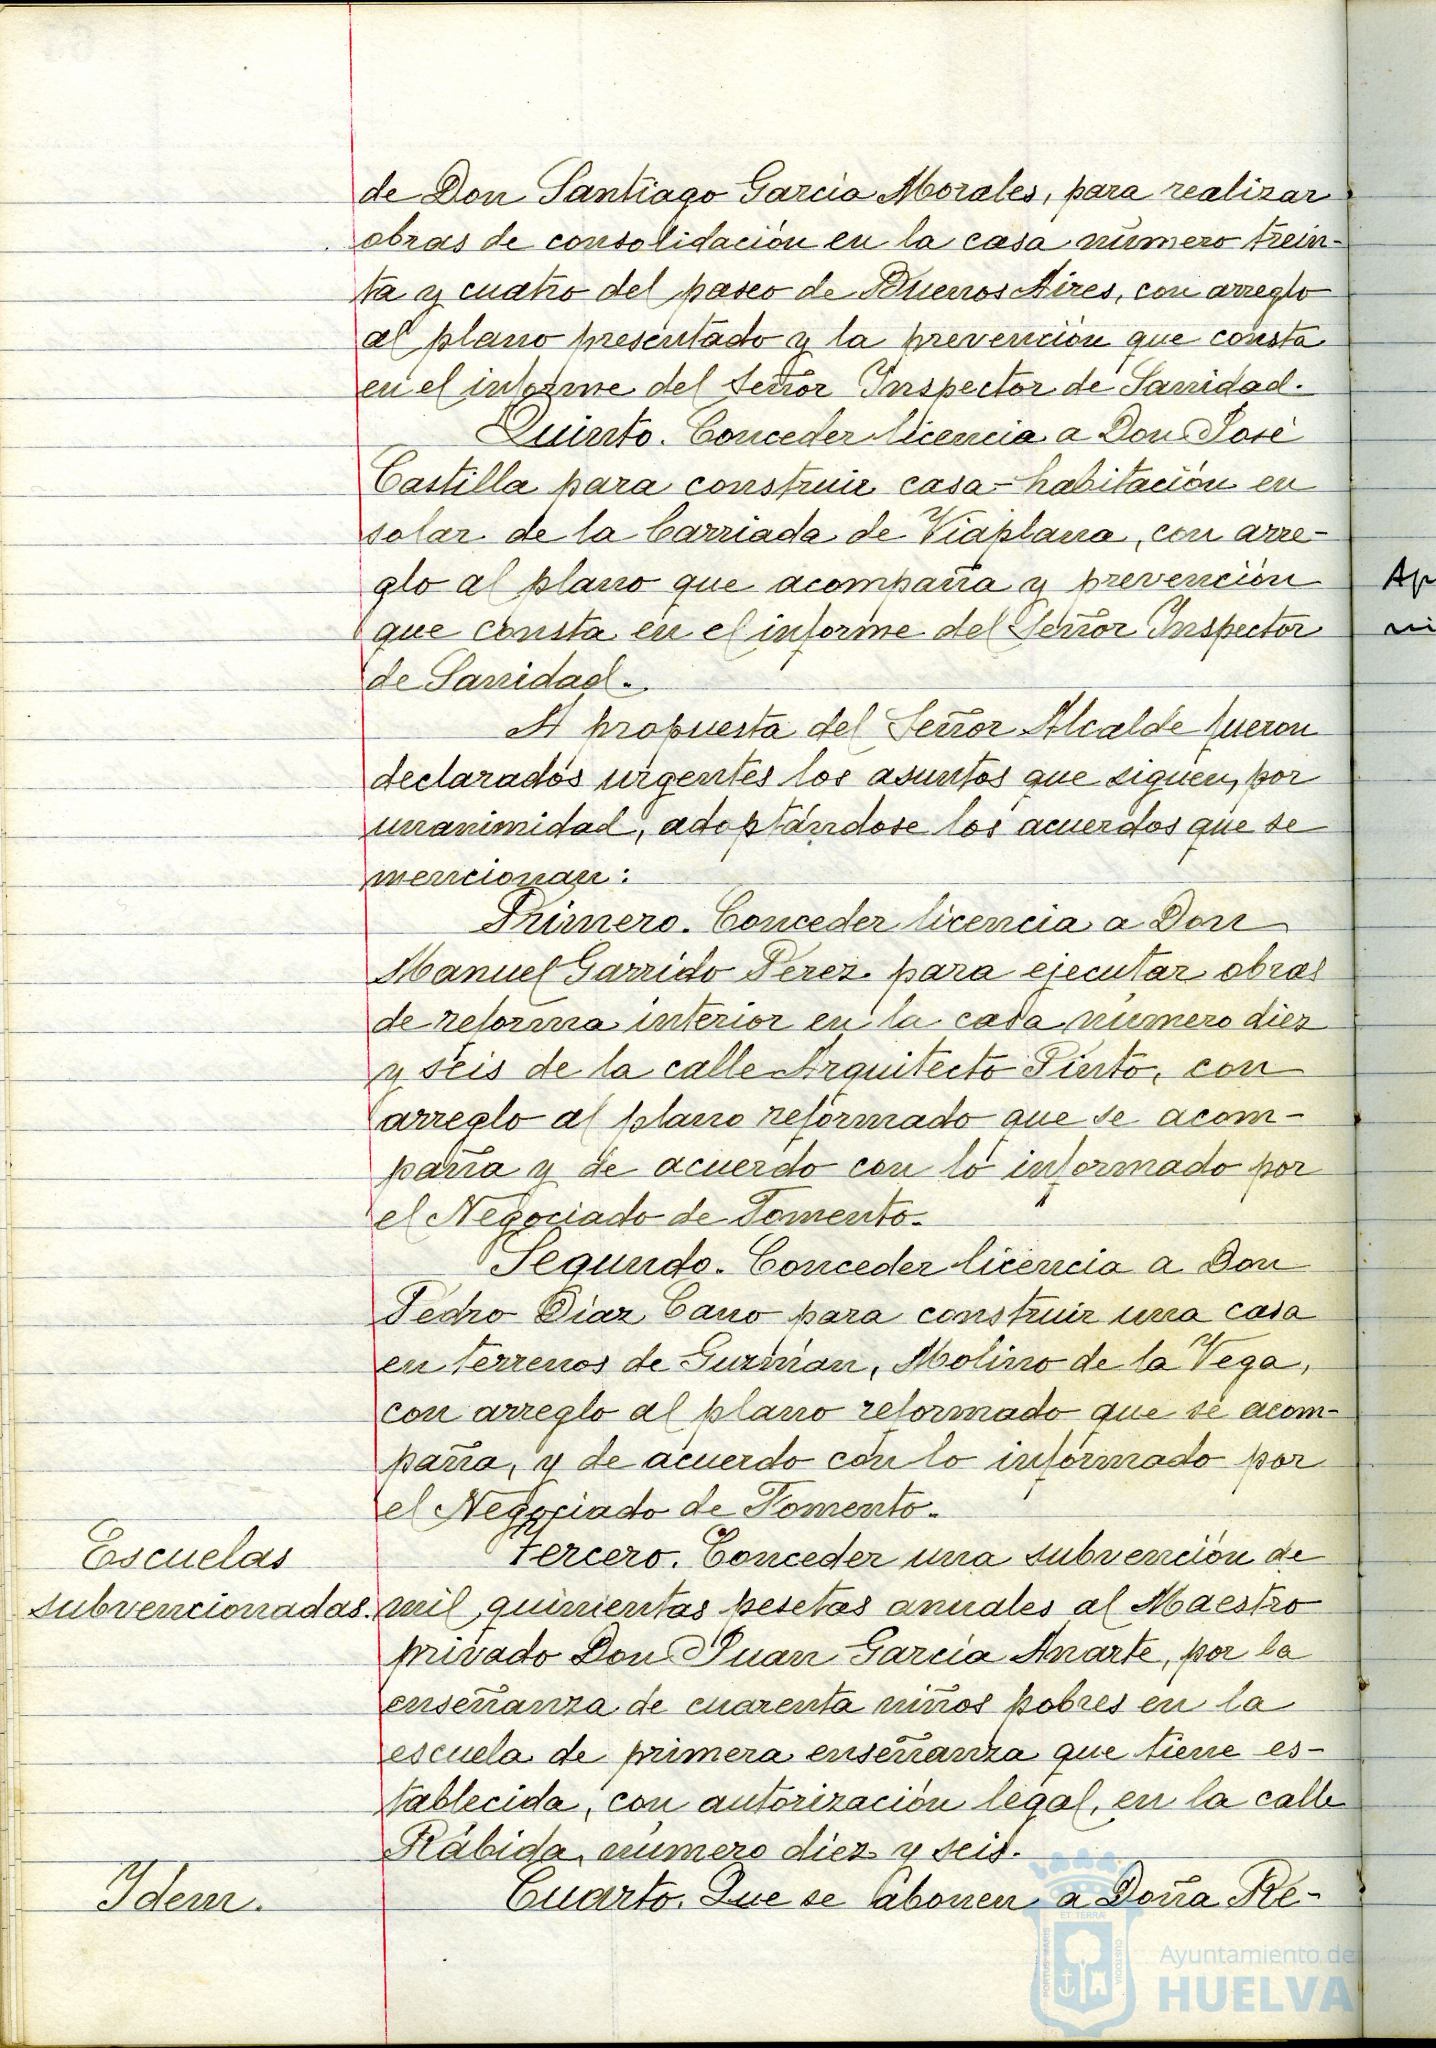 de Don Santiago García Morales, para realizar
obras de consolidación en la casa número trein-
ta y cuatro del paseo de Buenos Aires, con arreglo
al plano presentado y la prevención que consta
en el informe del Señor Inspector de Sanidad.
Quinto. Conceder licencia a Don José
Castilla para construir casa-habitación en
solar de la barriada de Viaplana, con arre-
glo al plano que acompaña y prevención
que consta en el informe del Señor Inspector
de Sanidad.
A propuesta del Señor Alcalde fueron
declarados urgentes los asuntos que siguen, por
unanimidad, adoptándose los acuerdos que se
mencionan:
Primero. Conceder licencia a Don
Manuel Garrido Pérez para ejecutar obras
de reforma interior en la casa número diez
y seis de la calle Arquitecto Pinto, con
arreglo al plano reformado que se acom-
paña y de acuerdo con lo informado por
el Negociado de Fomento.
Segundo. Conceder licencia a Don
Pedro Díaz Cano para construir una casa
en terrenos de Guzmán, Molino de la Vega,
con arreglo al plano reformado que se acom-
paña, y de acuerdo con lo informado por
el Negociado de Fomento.
Escuelas
subvencionadas.
Tercero. Conceder una subvención de
mil quinientas pesetas anuales al Maestro
privado Don Juan García Anarte, por la
enseñanza de cuarenta niños pobres en la
escuela de primera enseñanza que tiene es-
tablecida, con autorización legal, en la calle
Rábida, número diez y seis.
Idem.
Cuarto. Que se abonen a Doña Re-
Ap
ni
Ayuntamiento de
HUELVA